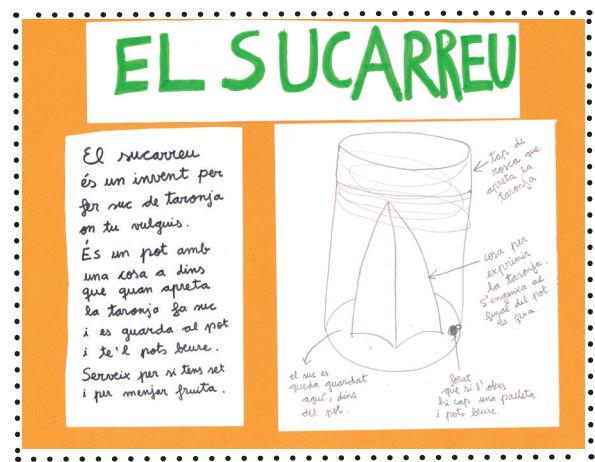 EL SUCARREU
El sucarreu
és un invent per
fer suc de taronja
on tu vulguis.
És un pot amb
una cosa a dins
que quan apreta
la taronja fa suc
i es guarda al pot
i te'l pots beure.
Serveix per si tens set
i per menjar fruita.
tap de
rosca que
apreta la
taronja
cosa per
exprimir
la taronja.
S'engenxa al
final del pot.
és fixa
el suc es
queda guardat
aquí, dins
del pot.
forat
que si l'obres
hi cap una palleta
i pots beure.